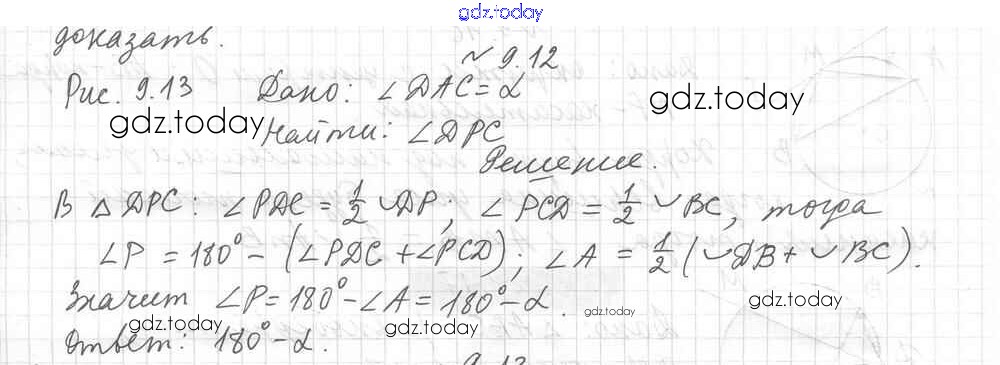 gdz.today
доказать.
№ 9.12
Рис. 9.13 Дано: ∠DAC = α
gdz.today
gdz.today Найти: ∠DPC
Решение.
В △DPC: ∠PDC = 1/2 ◡DP; ∠PCD = 1/2 ◡BC, тогда
∠P = 180° - (∠PDC + ∠PCD); ∠A = 1/2 (◡DB + ◡BC).
Значит ∠P = 180° - ∠A = 180° - α.
gdz.today gdz.today gdz.today gdz.today
Ответ: 180° - α.